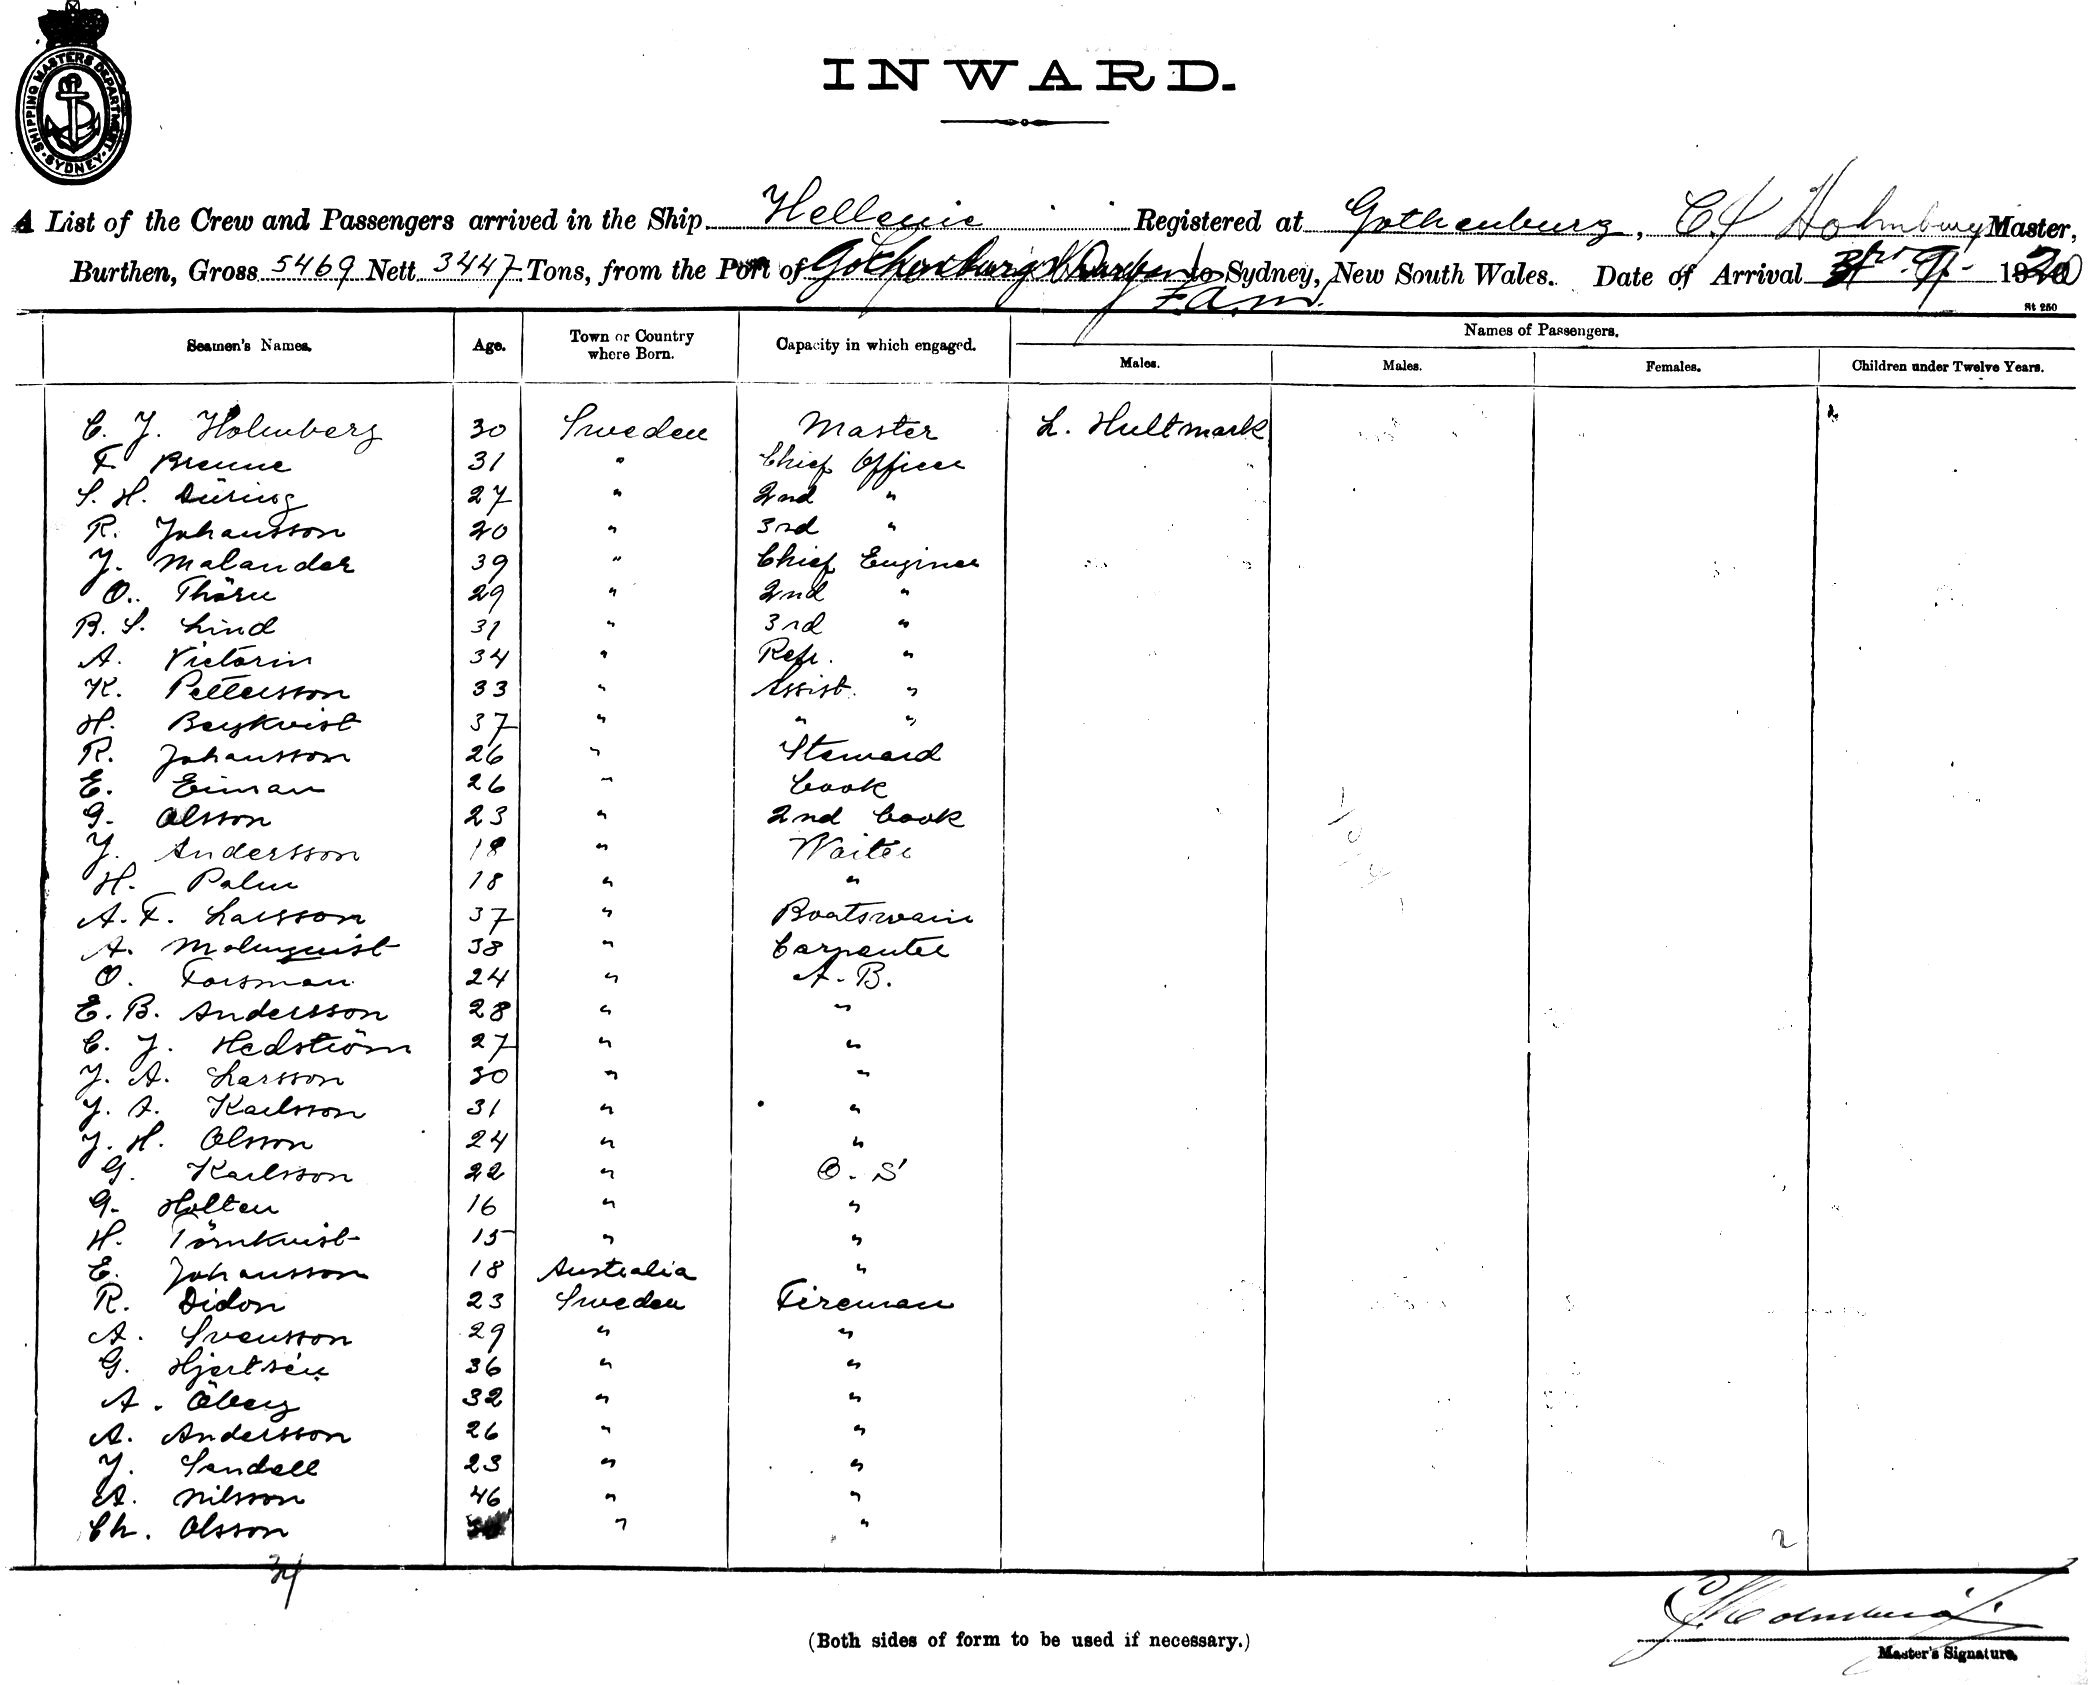 SHIPPING MASTERS DEPARTMENT
SYDNEY
INWARD.
A List of the Crew and Passengers arrived in the Ship Hellenic Registered at Gothenburg, C. J Holmberg Master,
Burthen, Gross 5469 Nett 3447 Tons, from the Port of Gothenburg to Sydney, New South Wales. Date of Arrival
F.A.M.
St 250
Seamen's Names. Age. Town or Country where Born. Capacity in which engaged. Names of Passengers.
Males. Males. Females. Children under Twelve Years.
C. J. Holmberg 30 Sweden Master L. Hultmark
F Brenne 31 " Chief Officer
S. H. Düring 27 " 2nd "
R. Johansson 20 " 3rd "
J. Malander 39 " Chief Engineer
O. Thörn 29 " 2nd "
B. S. Lind 31 " 3rd "
A. Victorin 34 " Refr. "
K. Pettersson 33 " Assist. "
H. Bergkvist 37 " " "
R. Johansson 26 " Steward
E. Eiman 26 " Cook
G. Olsson 23 " 2nd Cook
J. Andersson 18 " Waiter
H. Palm 18 " "
A. F. Larsson 37 " Boatswain
A. Malmquist 38 " Carpenter
O. Forsman 24 " A. B.
E. B. Andersson 28 " "
C. J. Hedström 27 " "
J. A. Larsson 30 " "
J. A. Karlsson 31 " "
J. H. Olsson 24 " "
G. Karlsson 22 " O. S
G. Holten 16 " "
H. Törnkvist 15 " "
E. Johansson 18 Australia "
R. Didon 23 Sweden Fireman
A. Svensson 29 " "
G. Hjertsén 36 " "
A. Öberg 32 " "
A. Andersson 26 " "
J. Sandell 23 " "
A. Nilsson 46 " "
Ch. Olsson " "
(Both sides of form to be used if necessary.)
C. J. Holmberg
Master's Signature.